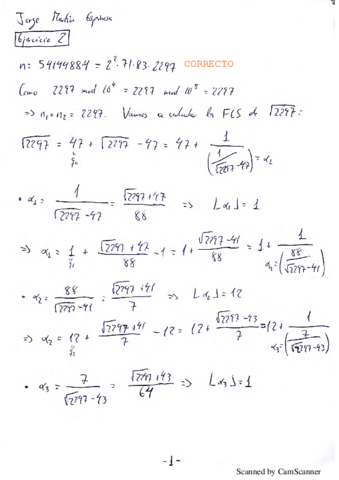 Jorge Martín Espinosa
Ejercicio 2
n = 54144884 = 2²·71·83·2297 CORRECTO
Como 2297 mod 10⁴ = 2297 mod 10⁵ = 2297
⇒ n₁ = n₂ = 2297. Vamos a calcular la FCS de √2297:
√2297 = 47 + √2297 - 47 = 47 + 1/(1/(√2297-47)) = α₁
q₀
• α₁ = 1/(√2297-47) = (√2297+47)/88 ⇒ ⌊α₁⌋ = 1
⇒ α₁ = 1 + (√2297+47)/88 - 1 = 1 + (√2297-41)/88 = 1 + 1/(88/(√2297-41))
q₁ α₂=
• α₂ = 88/(√2297-41) = (√2297+41)/7 ⇒ ⌊α₂⌋ = 12
⇒ α₂ = 12 + (√2297+41)/7 - 12 = 12 + (√2297-43)/7 = 12 + 1/(7/(√2297-43))
q₂ α₃=
• α₃ = 7/(√2297-43) = (√2297+43)/64 ⇒ ⌊α₃⌋ = 1
-1-
Scanned by CamScanner